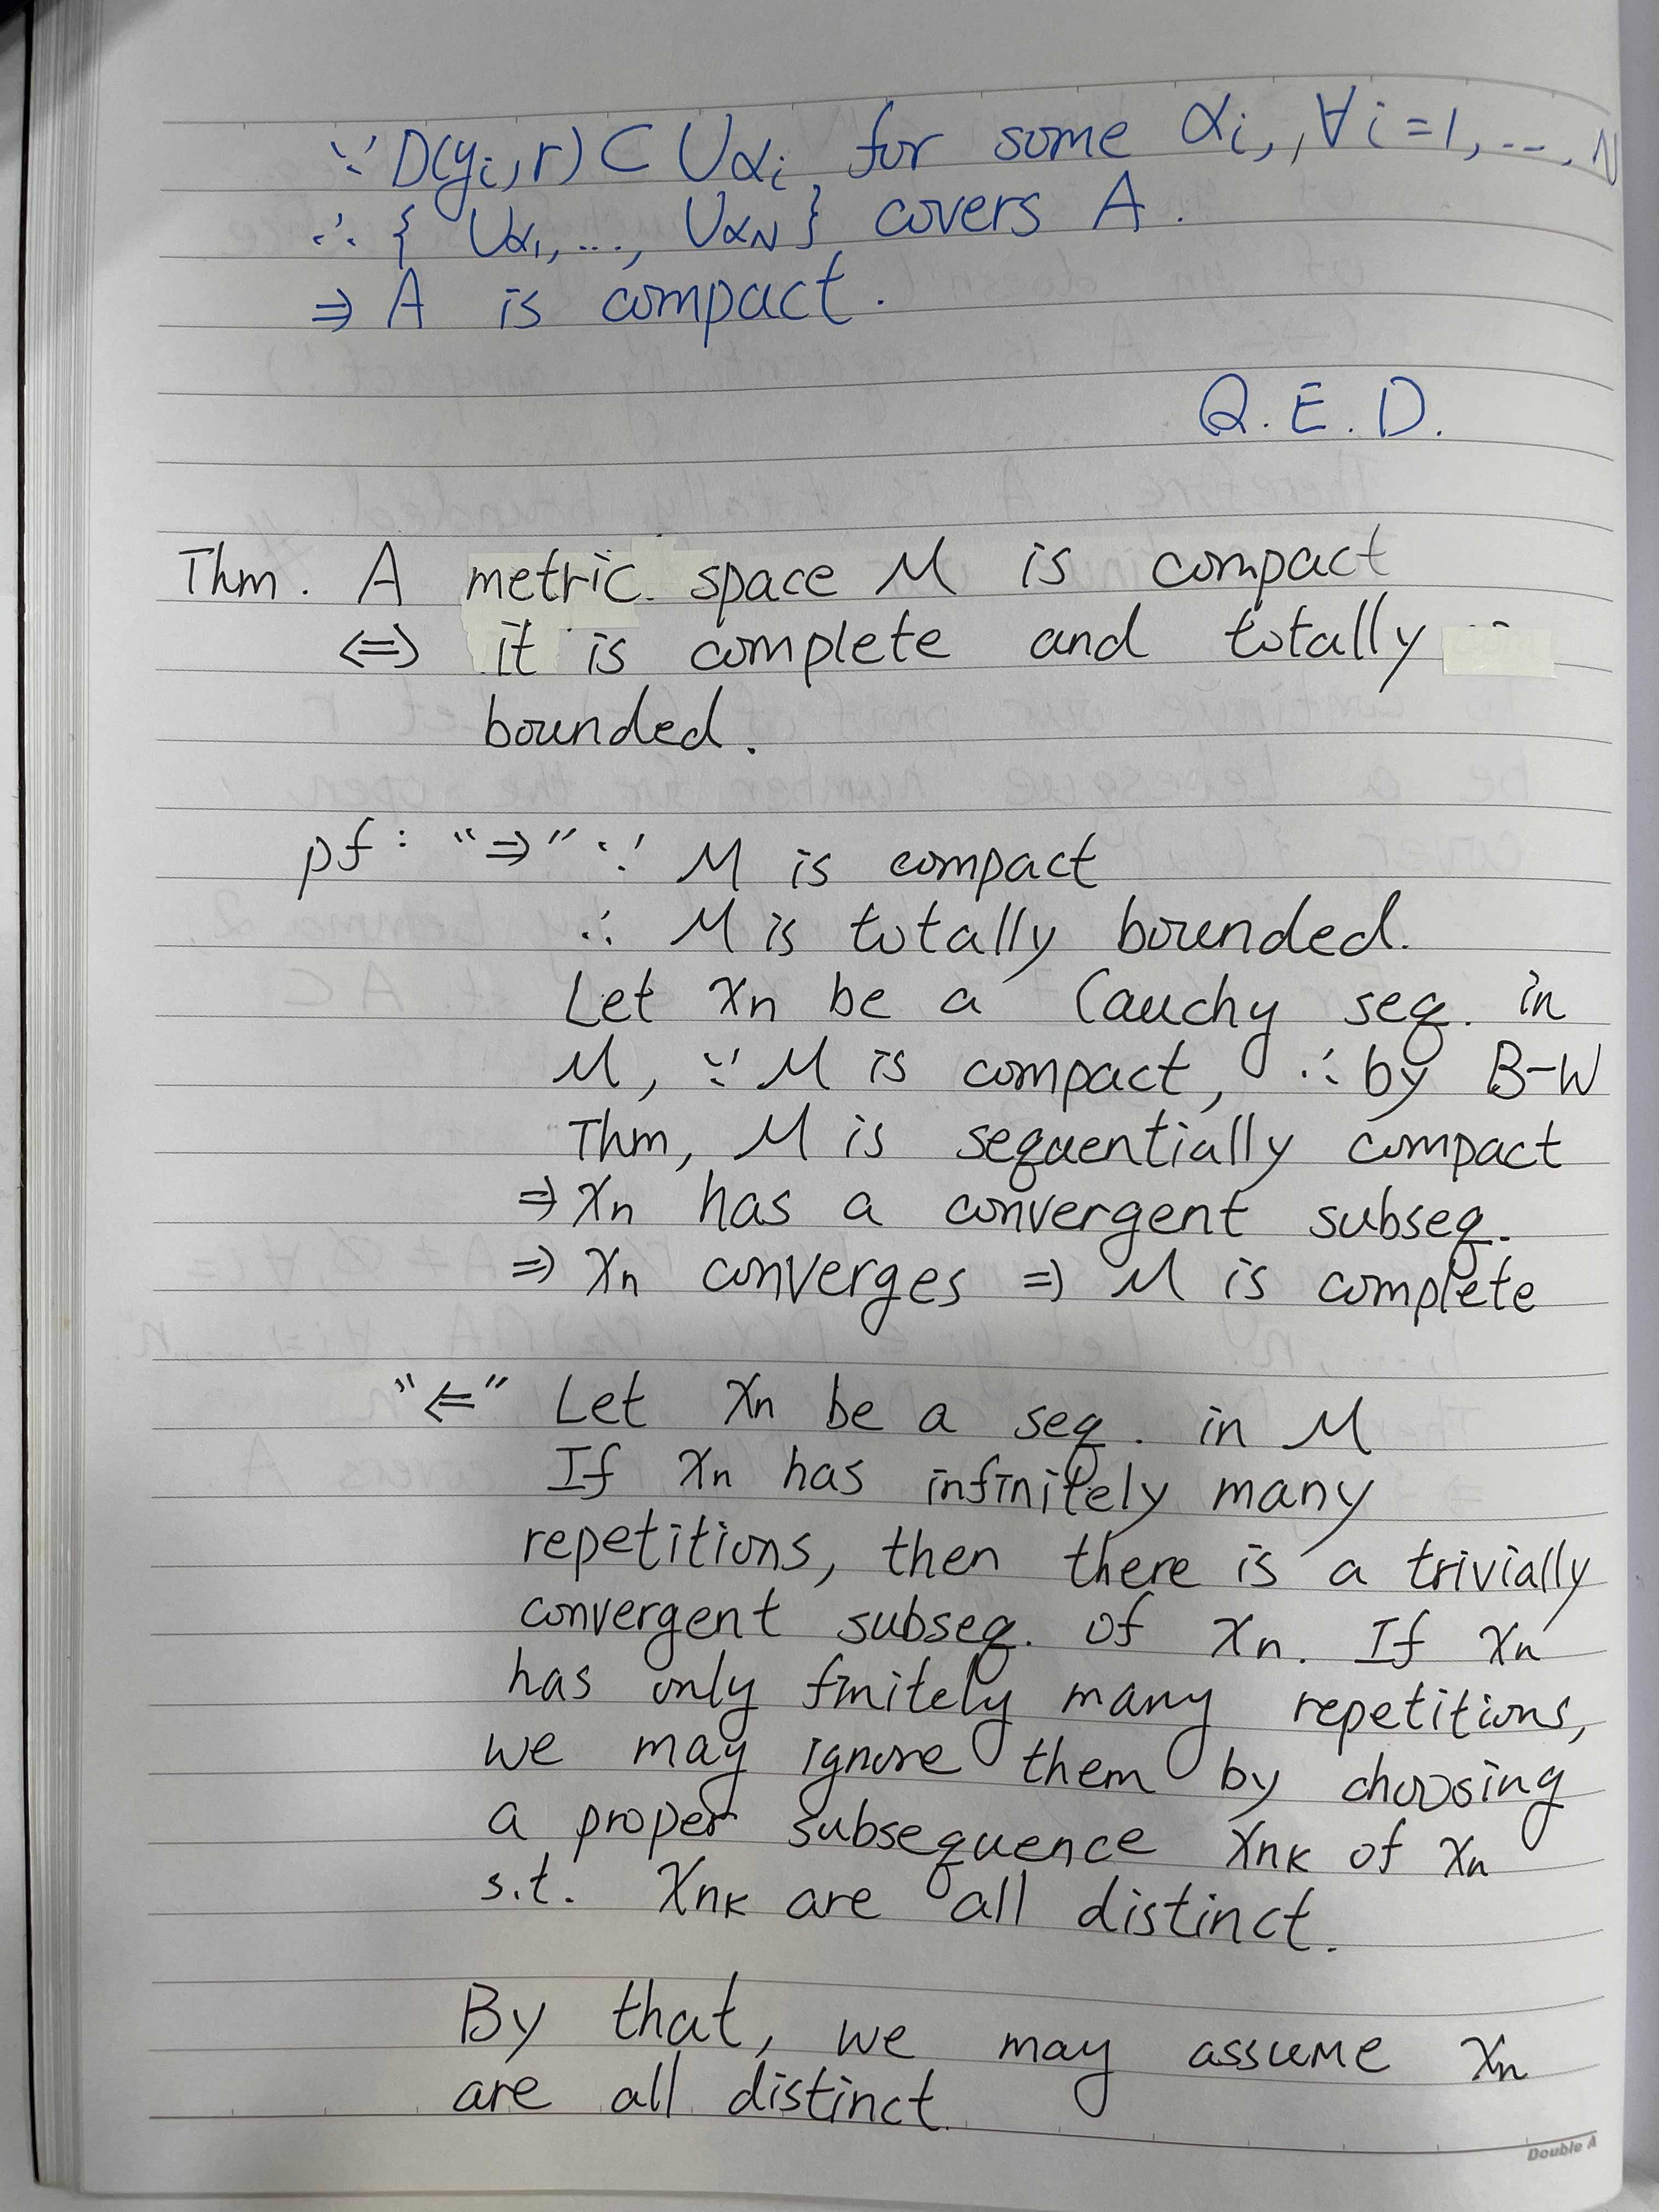 ∵ D(yi, r) ⊂ Uαi for some αi, ∀i=1, ..., N
∴ { Uα1, ..., UαN } covers A.
⇒ A is compact.
Q.E.D.
Thm. A metric space M is compact
⇔ it is complete and totally
bounded.
pf: "⇒" ∵ M is compact
∴ M is totally bounded.
Let xn be a Cauchy seq. in
M, ∵ M is compact, ∴ by B-W
Thm, M is sequentially compact
⇒ xn has a convergent subseq.
⇒ xn converges ⇒ M is complete
"⇐" Let xn be a seq. in M
If xn has infinitely many
repetitions, then there is a trivially
convergent subseq. of xn. If xn
has only finitely many repetitions,
we may ignore them by choosing
a proper subsequence xnk of xn
s.t. xnk are all distinct.
By that, we may assume xn
are all distinct.
Double A